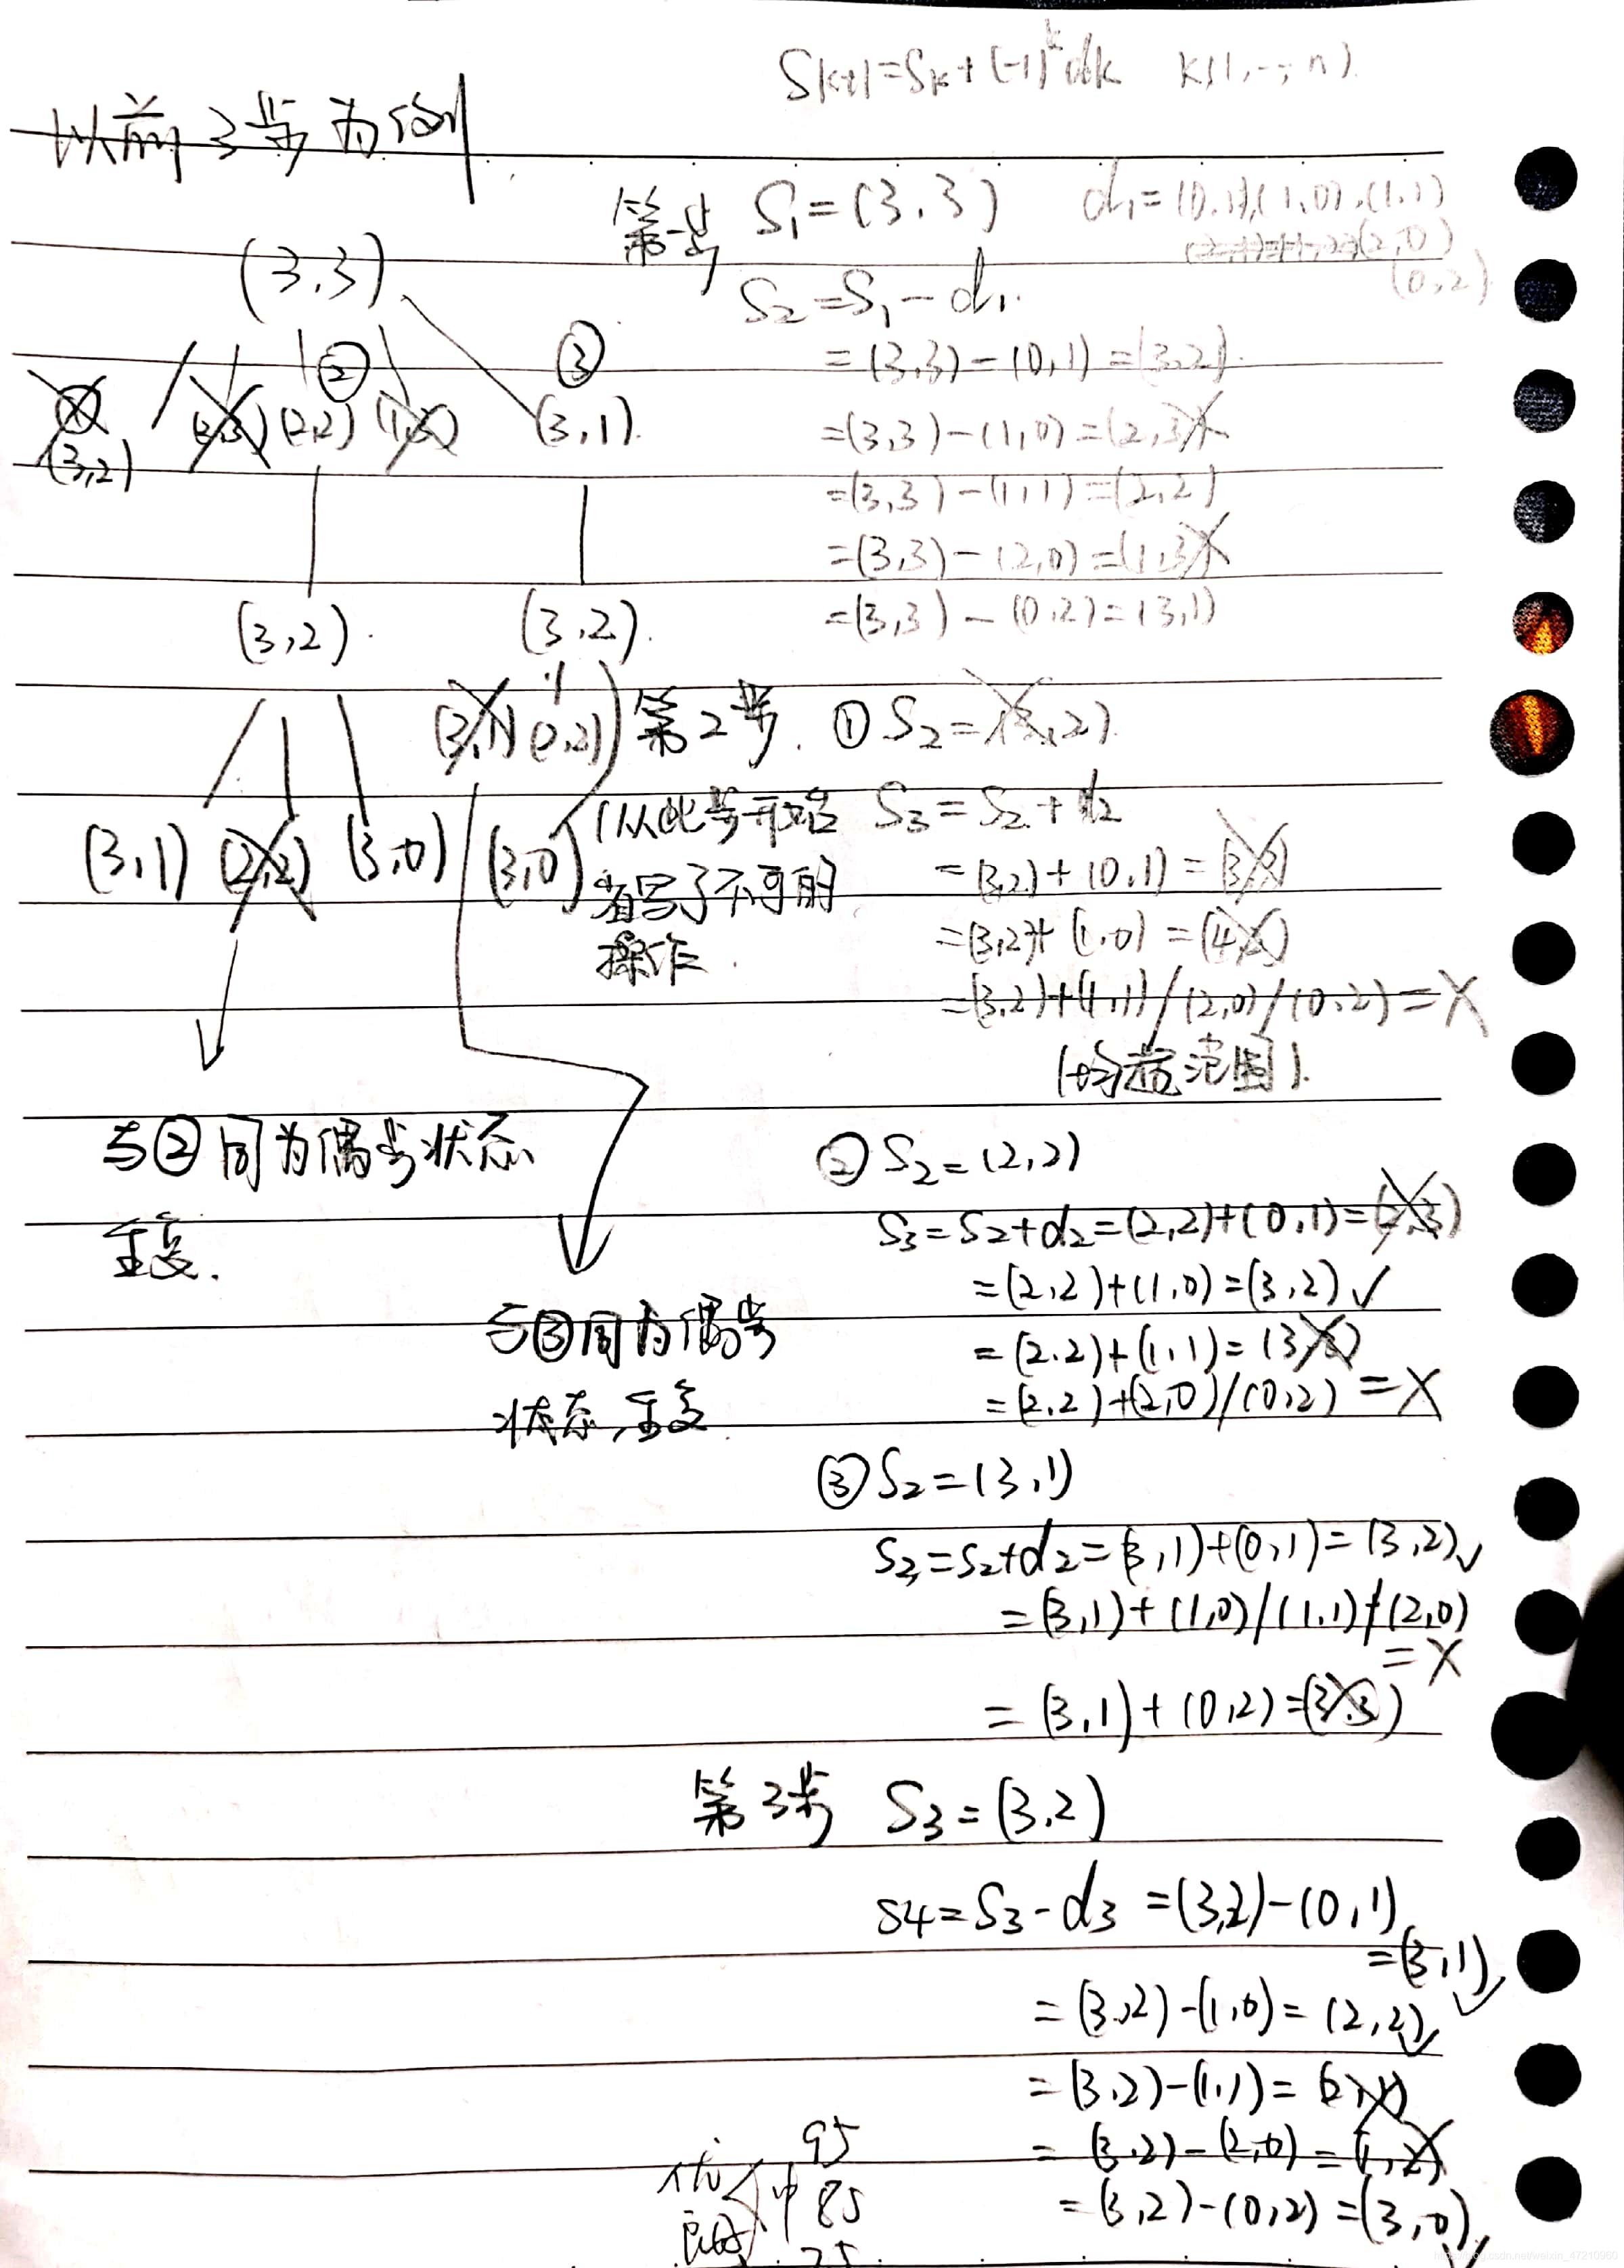 S_{k+1}=S_k+(-1)^k d_k k(1,…,n)
以前3步为例
第一步 S₁=(3,3) d₁=(0,1),(1,0),(1,1)
(2,0)
(0,2)
S₂=S₁-d₁
=(3,3)-(0,1)=(3,2)
=(3,3)-(1,0)=(2,3)×
=(3,3)-(1,1)=(2,2)
=(3,3)-(2,0)=(1,3)×
=(3,3)-(0,2)=(3,1)
(3,3)
① ② ③
(3,2) (2,3) (2,2) (1,3) (3,1)
(3,2) (3,2)
(3,1) (2,2)
(3,1) (2,2) (3,0) (3,0)
与②同为偶步状态
重复.
与③同为偶步
状态,重复
第2步. ①S₂=(3,2)
(从此步开始
省写了不可的
操作.
S₃=S₂+d₂
=(3,2)+(0,1)=(3,3)
=(3,2)+(1,0)=(4,2)
=(3,2)+(1,1)/(2,0)/(0,2)=×
(均超范围).
②S₂=(2,2)
S₃=S₂+d₂=(2,2)+(0,1)=(2,3)
=(2,2)+(1,0)=(3,2)✓
=(2,2)+(1,1)=(3,3)
=(2,2)+(2,0)/(0,2)=×
③S₂=(3,1)
S₃=S₂+d₂=(3,1)+(0,1)=(3,2)✓
=(3,1)+(1,0)/(1,1)/(2,0)
=×
=(3,1)+(0,2)=(3,3)
第3步 S₃=(3,2)
S4=S₃-d₃=(3,2)-(0,1)
=(3,1)✓
=(3,2)-(1,0)=(2,2)✓
=(3,2)-(1,1)=(2,1)
=(3,2)-(2,0)=(1,2)
=(3,2)-(0,2)=(3,0)✓
95
优 中 85
75